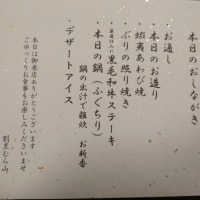 本日のおしながき
お通し
本日のお造り
・蝦夷あわび焼
・ぶりの照り焼き
黒毛和牛ステーキ
・本日の鍋(ふぐちり)
鍋の出汁で雑炊 お新香
・デザートアイス
本日は御来店ありがとうございます
ごゆっくりお食事をお楽しみくださいませ
割烹むら山